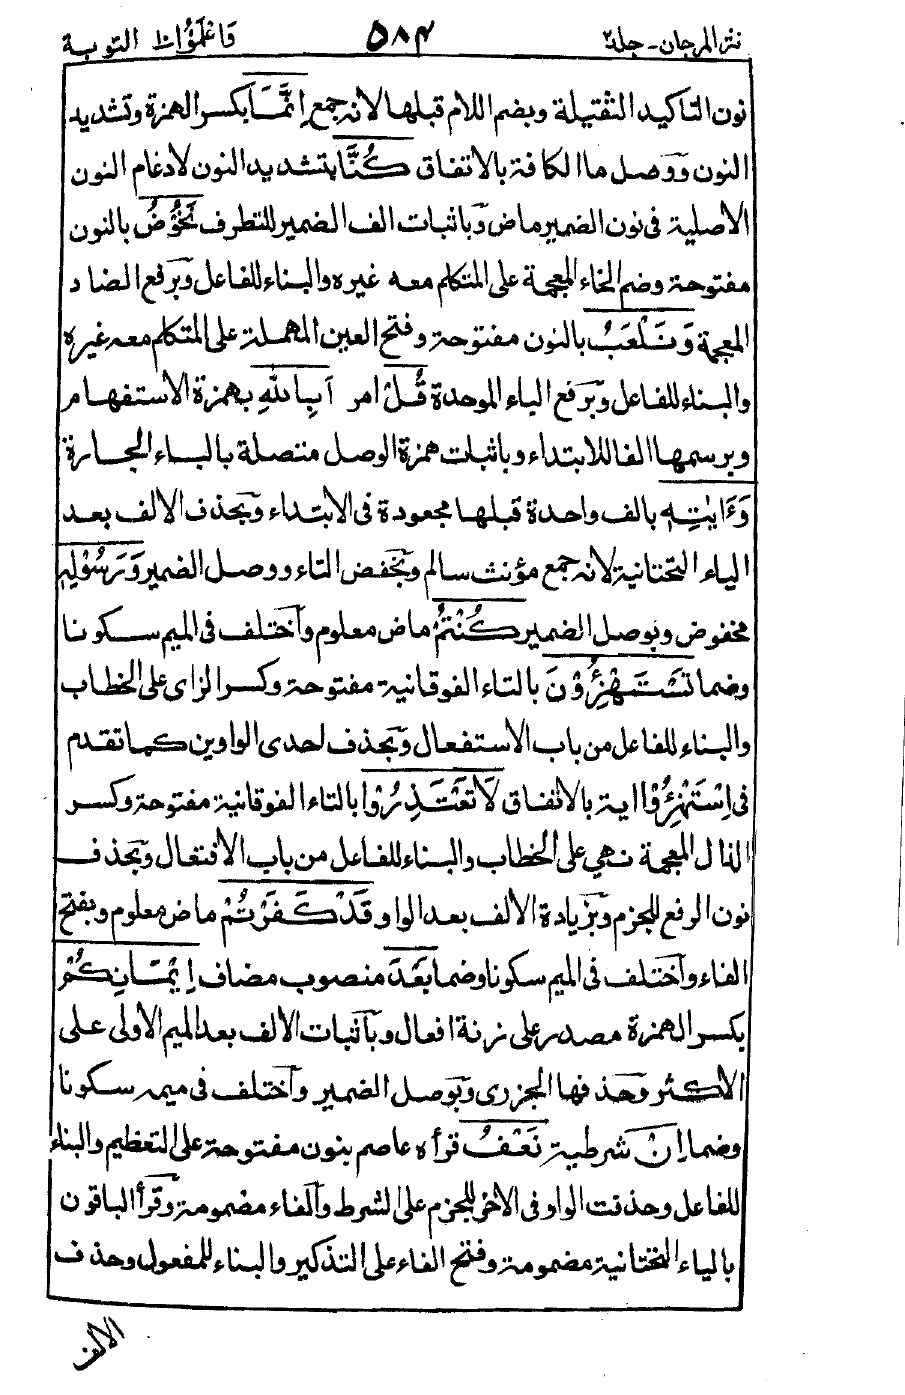 نثر المرجان - جلد٢ ٥٨٤ واعلموا١٠ التوبة
نون التاكيد الثقيلة وبضم اللام قبلها لانه جمع اِنَّمَا بكسر الهمزة وتشديد
النون ووصل ما الكافة بالاتفاق كُنَّا بتشديد النون لادغام النون
الاصلية فى نون الضمير ماض وباثبات الف الضمير للتطرف نَخُوْضُ بالنون
مفتوحة وضم الخاء المعجمة على المتكلم معه غيره والبناء للفاعل وبرفع الضاد
المعجمة وَنَلْعَبُ بالنون مفتوحة وفتح العين المهملة على المتكلم معه غيره
والبناء للفاعل وبرفع الباء الموحدة قُلْ امر اَبِاللّٰهِ بهمزة الاستفهام
وبرسمها الفا للابتداء وباثبات همزة الوصل متصلة بالباء الجارة
وَءَايٰتِهٖ بالف واحدة قبلها مجعودة فى الابتداء وبحذف الالف بعد
الياء التحتانية لانه جمع مؤنث سالم وبخفض التاء ووصل الضمير وَرَسُوْلِهٖ
مخفوض وبوصل الضمير كُنْتُمْ ماض معلوم واختلف فى الميم سكونا
وضما تَسْتَهْزِءُوْنَ بالتاء الفوقانية مفتوحة وكسر الزاى على الخطاب
والبناء للفاعل من باب الاستفعال وبحذف احدى الواوين كما تقدم
فى اِسْتَهْزِءُوْا اية بالاتفاق لَا تَعْتَذِرُوْا بالتاء الفوقانية مفتوحة وكسر
الذال المعجمة نهى على الخطاب والبناء للفاعل من باب الافتعال وبحذف
نون الرفع للجزم وبزيادة الالف بعد الواو قَدْ كَفَرْتُمْ ماض معلوم وبفتح
الفاء واختلف فى الميم سكونا وضما بَعْدَ منصوب مضاف اِيْمَانِكُمْ
بكسر الهمزة مصدر على زنة افعال وباثبات الالف بعد الميم الاولى على
الاكثر وحذفها الجزرى وبوصل الضمير واختلف فى ميمه سكونا
وضما اِنْ شرطية نَعْفُ قرأه عاصم بنون مفتوحة على التعظيم والبناء
للفاعل وحذفت الواو فى الاخر للجزم على الشرط والفاء مضمومة وقرأ الباقون
بالياء التحتانية مضمومة وفتح الفاء على التذكير والبناء للمفعول وحذف
الالف